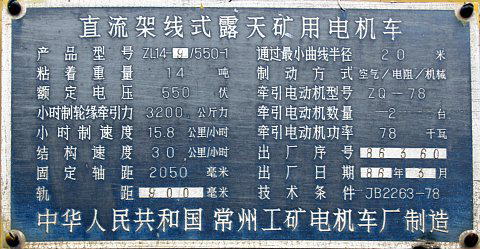 直流架线式露天矿用电机车
产品型号 ZL14-9/550-1 通过最小曲线半径 20 米
粘着重量 14 吨 制动方式 空气/电阻/机械
额定电压 550 伏 牵引电动机型号 ZQ-78
小时制轮缘牵引力 3200 公斤力 牵引电动机数量 2 台
小时制速度 15.8 公里/小时 牵引电动机功率 78 千瓦
结构速度 30 公里/小时 出厂序号 86360
固定轴距 2050 毫米 出厂日期 86年3月
轨距 900 毫米 技术条件 JB2263-78
中华人民共和国 常州工矿电机车厂制造